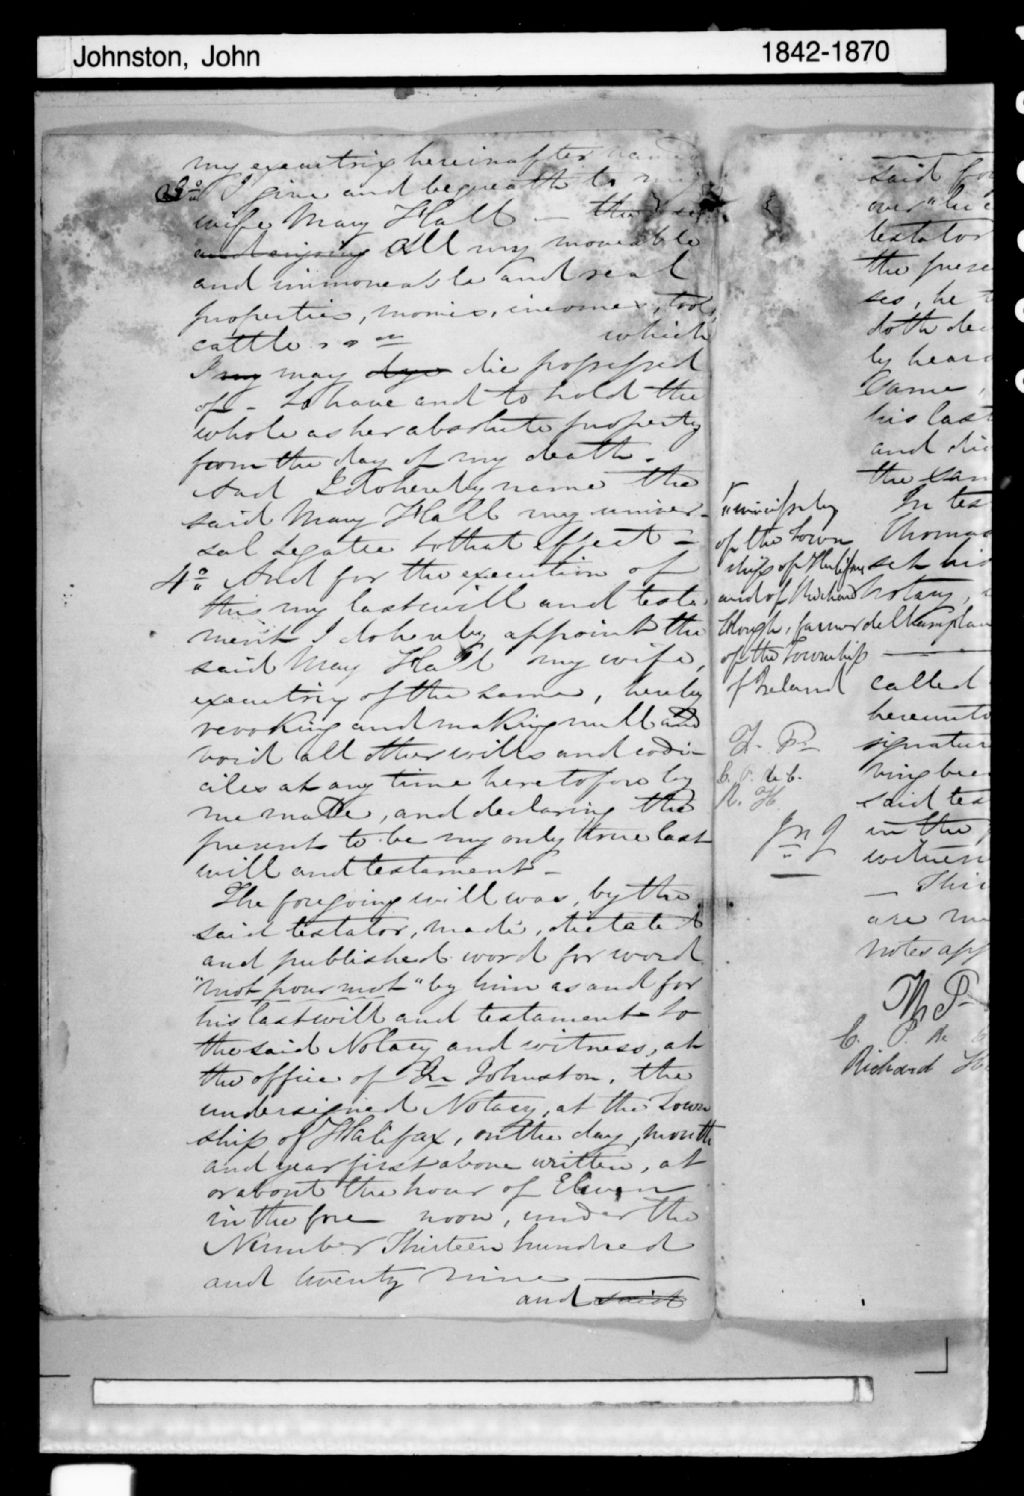 Johnston, John 1842-1870
my executrix hereinafter named
3º I give and bequeath to my
wife Mary Hall - the use
and enjoying All my moveable
and immoveable and real
properties, monies, incomes, tools,
cattle which
I my may dye die possessed
of - To have and to hold the
whole as her absolute property
from the day of my death.
And I do hereby name the
said Mary Hall my univer-
sal Legatee to that effect -
4º And for the execution of
this my last will and testa
ment I do hereby appoint the
said Mary Hall my wife,
executrix of the same, hereby
revoking and making null and
void all other wills and codi-
ciles at any time heretofore by
me made, and declaring the
present to be my only true last
will and testament -
The foregoing will was, by the
said testator, made, dictated
and published word for word
"mot pour mot" by him as and for
his last will and testament to
the said Notary and witness, at
the office of Jn Johnston, the
undersigned Notary, at the Town
ship of Halifax, on the day, month
and year first above written, at
or about the hour of Eleven
in the fore noon, under the
Number Thirteen hundred
and twenty nine
and said
of the Town
ship of Halifax
and of Richard
Clough, farmer
of the Township
of Ireland
T. Pn
C. P. de C.
R. H.
Jn J
said
over
testator
the prese
ses, he
doth de
ly hear
same,
his last
and di
the San
In tes
Thomas
set his
Notary,
de Champlain
called
hereunto
signatur
ving bee
said tes
in the
witness
This
are
notes app
Th Pn
C. P. de C
Richard H